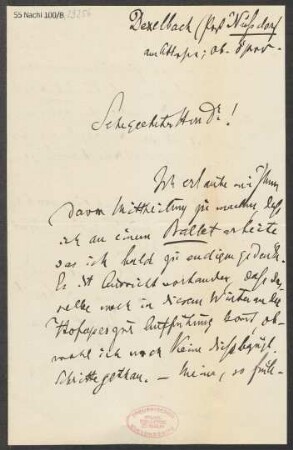 55 Nachl 100/B
Dexelbach (Post Nußdorf
am Attersee; Ob. Öster.
Sehrgeehrter Herr Dr!
Ich erlaube mir Ihnen
davon Mittheilung zu machen daß
ich an einem Ballet arbeite
das ich bald zu endigen gedenke.
Es ist Aussicht vorhanden, daß das-
selbe noch in diesem Winter an der
Hofoper zur Aufführung kommt ob-
wohl ich noch keine diesbezügl.
Schritte gethan. – Meine, so früh-